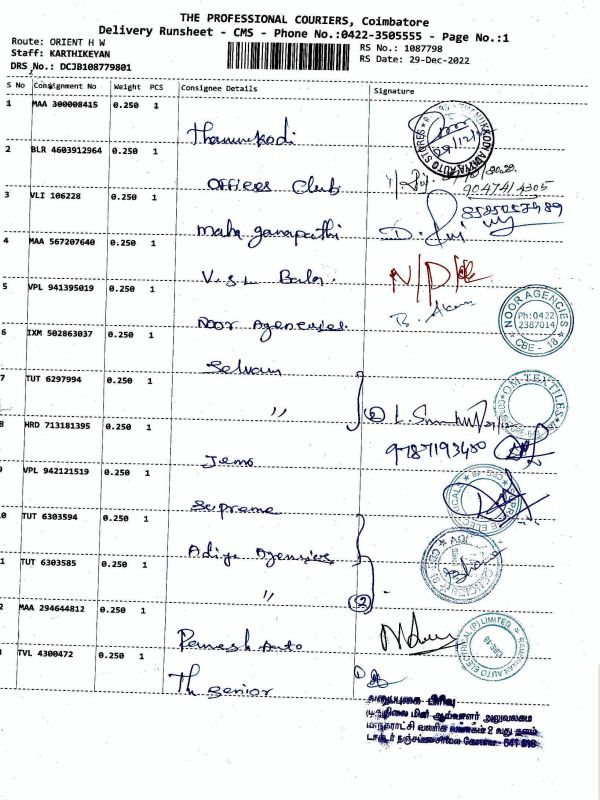 THE PROFESSIONAL COURIERS, Coimbatore
Delivery Runsheet - CMS - Phone No.:0422-3505555 - Page No.:1
Route: ORIENT H W
Staff: KARTHIKEYAN
DRS No.: DCJB108779801
RS No.: 1087798
RS Date: 29-Dec-2022
S No Consignment No Weight PCS Consignee Details Signature
1 MAA 300008415 0.250 1
Thanumkodi
2 BLR 4603912964 0.250 1
Officers Club
9047414305
3 VLI 106228 0.250 1
Maha ganapathi
8525057489
4 MAA 567207640 0.250 1
V.S.L Balaji
N/D
5 VPL 941395019 0.250 1
Noor Agencies
NOOR AGENCIES
Ph:0422
2387014
CBE - 18
6 IXM 502863037 0.250 1
Selvam
7 TUT 6297994 0.250 1
"
2
OM TEXTILES
8 HRD 713181395 0.250 1
9787193480
Jems
9 VPL 942121519 0.250 1
Supreme
0 TUT 6303594 0.250 1
Adiya Agencies
1 TUT 6303585 0.250 1
"
2
2 MAA 294644812 0.250 1
Ramesh Auto
TVL 4300472 0.250 1
Th Senior
பிரிவு